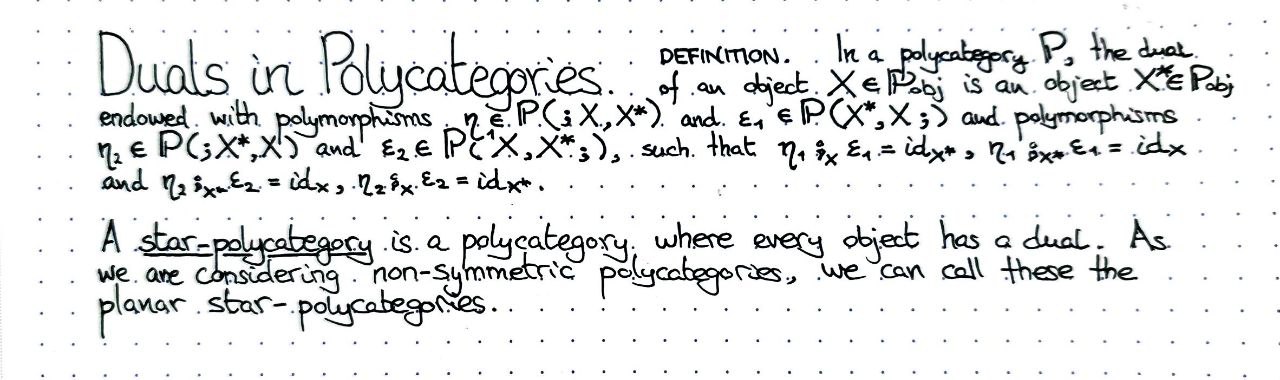 Duals in Polycategories. DEFINITION. In a polycategory P, the dual
of an object X ∈ ℙobj is an object X* ∈ ℙobj
endowed with polymorphisms η₁ ∈ ℙ(; X, X*) and ε₁ ∈ ℙ(X*, X ;) and polymorphisms
η₂ ∈ ℙ(; X*, X) and ε₂ ∈ ℙ(X, X* ;), such that η₁ ⨟X ε₁ = idX*, η₁ ⨟X* ε₁ = idX
and η₂ ⨟X* ε₂ = idX, η₂ ⨟X ε₂ = idX*.
A star-polycategory is a polycategory where every object has a dual. As
we are considering non-symmetric polycategories, we can call these the
planar star-polycategories.